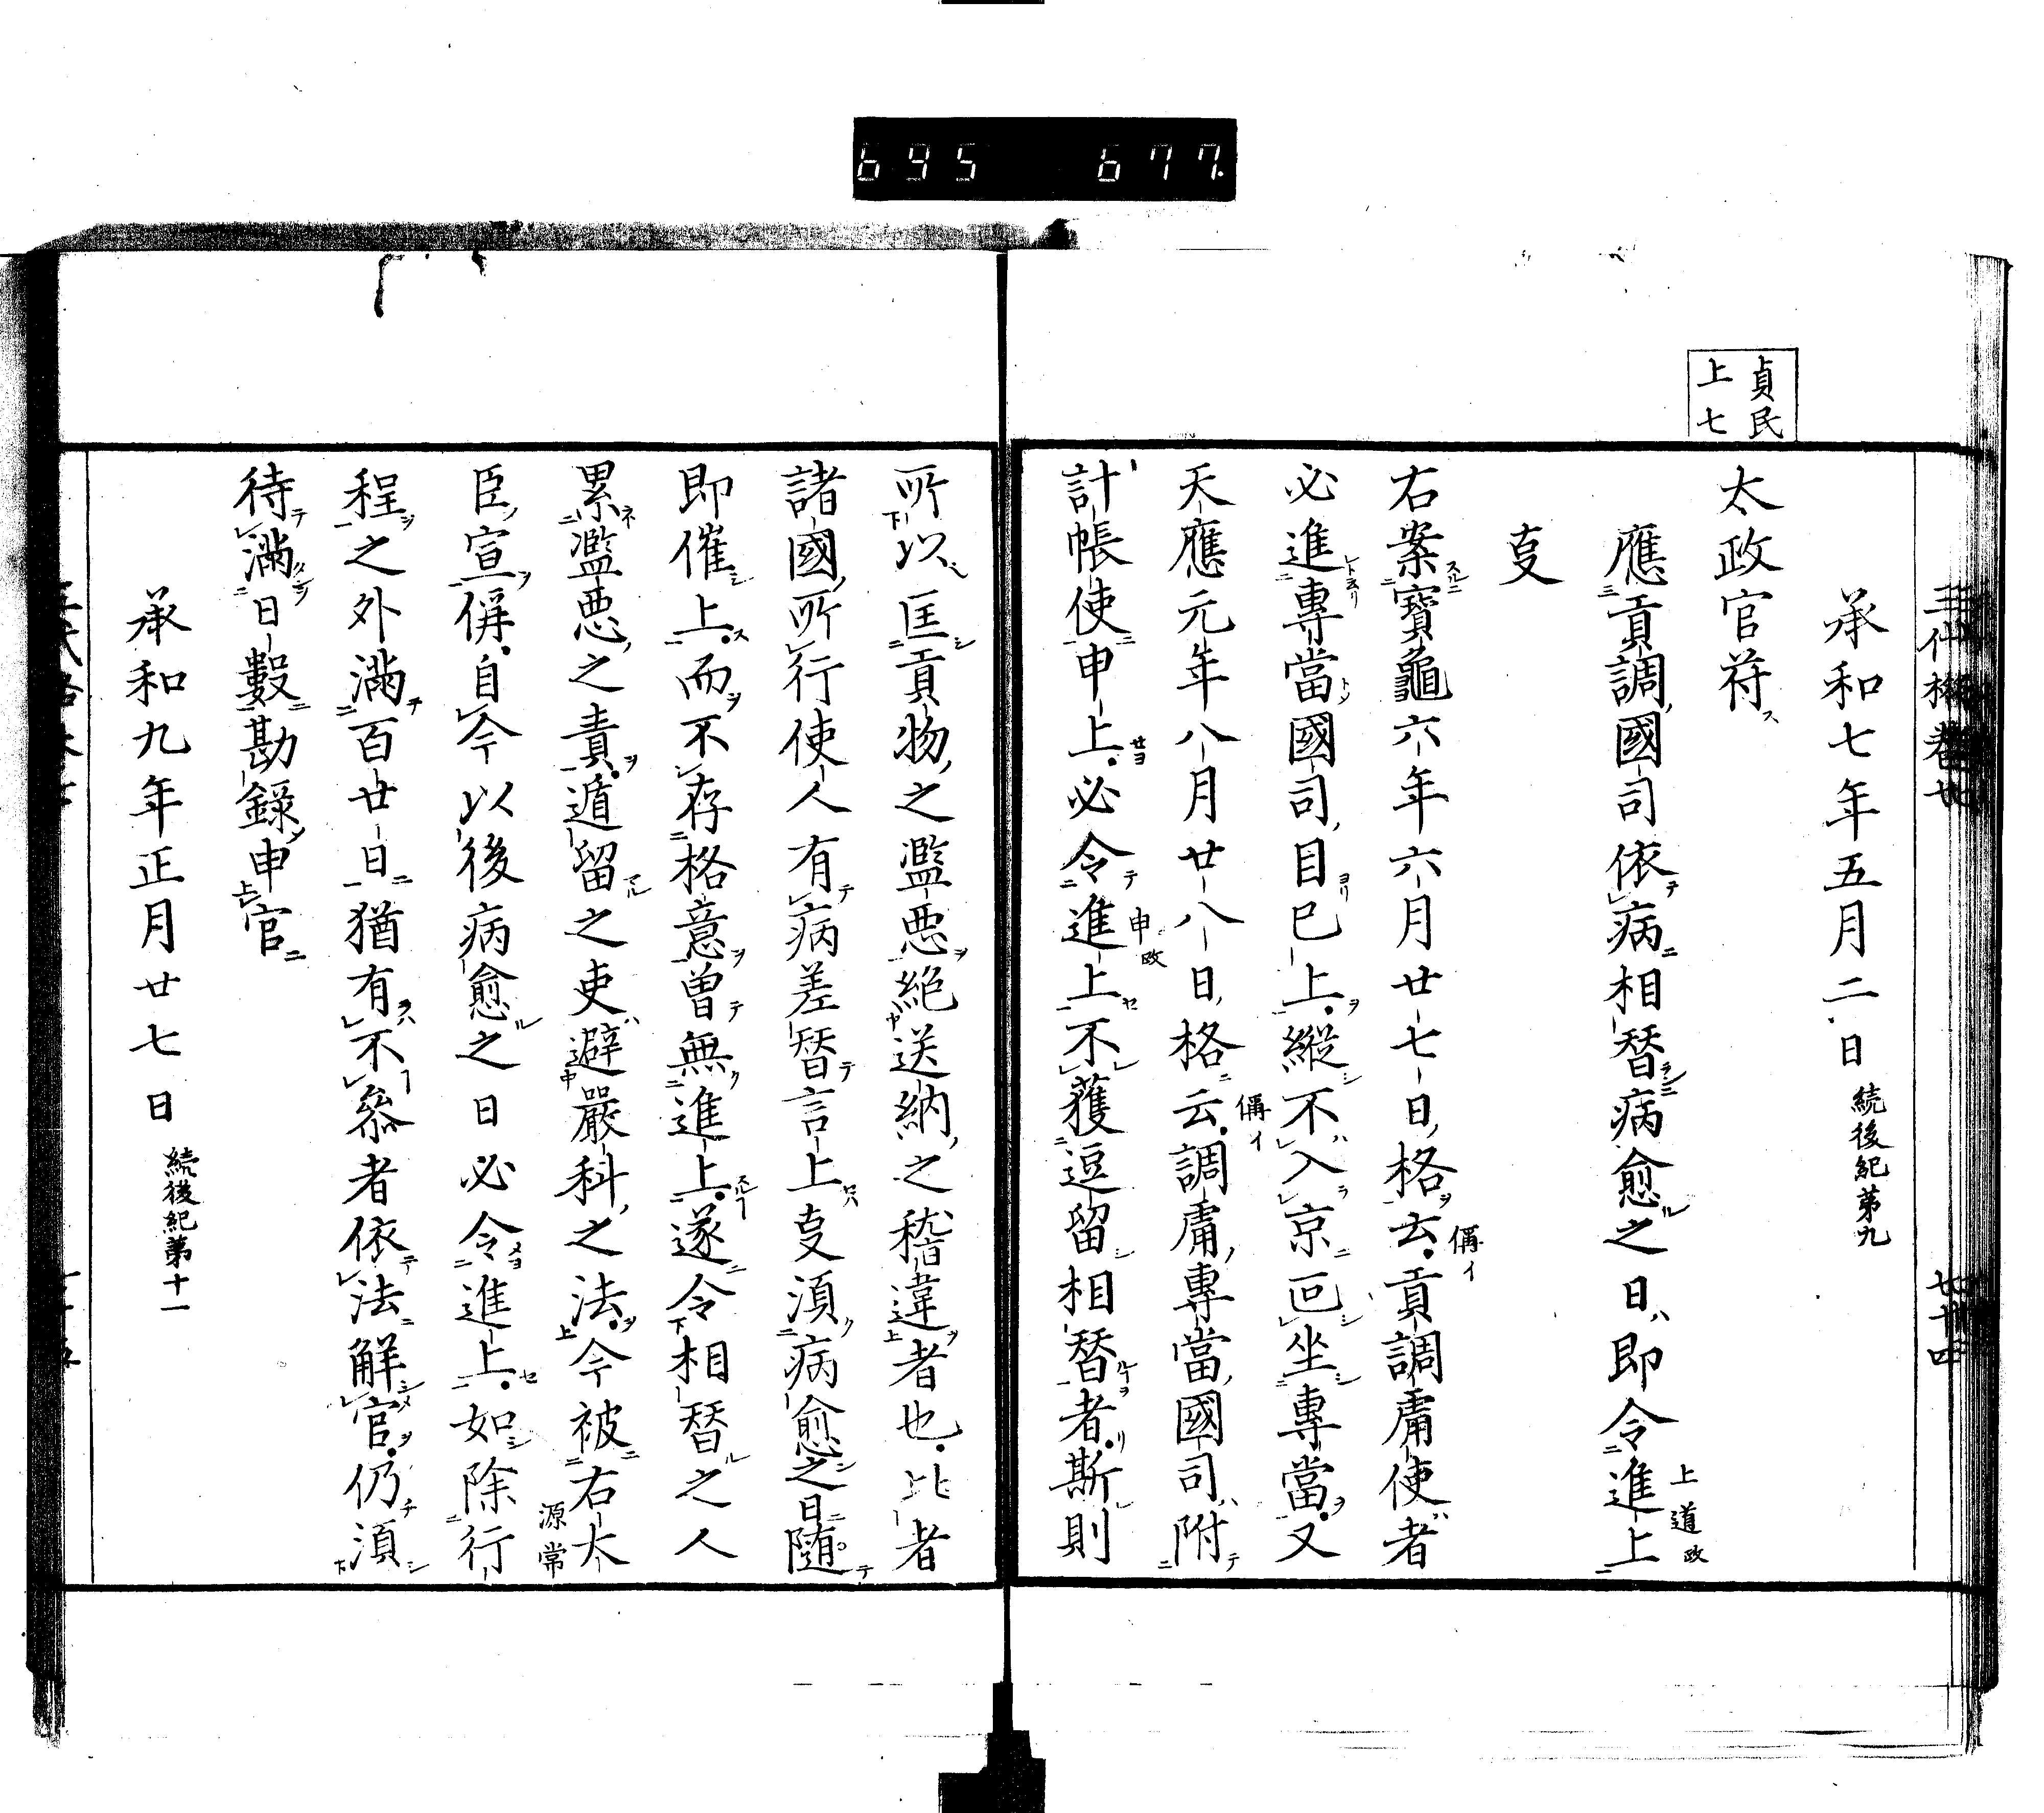 695 677.
貞民
上七
承和七年五月二日 続後紀第九
太政官符
應貢調國司依病相替病愈之日即令進上
上道政
㕝
右案寶龜六年六月廿七日格云貢調庸使者
偁イ
必進專當國司目已上縱不入京回坐專當又
天應元年八月廿八日格云調庸專當國司附
偁イ
計帳使申上必令進上不獲逗留相替者斯則
申政
所以匡貢物之濫惡絶送納之稽違者也比者
諸國所行使人有病差替言上㕝須病愈之日隨
即催上而不存格意曽無進上遂令相替之人
累濫悪之責遁留之吏避嚴科之法今被右大
源常
臣宣偁自今以後病愈之日必令進上如除行
程之外滿百廿日猶有不叅者依法解官仍須
待滿日數勘録申官
承和九年正月廿七日 続後紀第十一